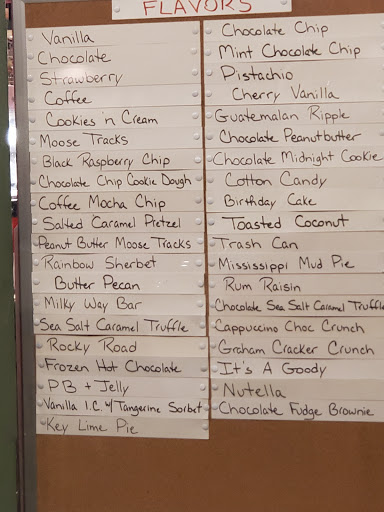 FLAVORS
Vanilla
Chocolate
Strawberry
Coffee
Cookies 'n Cream
Moose Tracks
Black Raspberry Chip
Chocolate Chip Cookie Dough
Coffee Mocha Chip
Salted Caramel Pretzel
Peanut Butter Moose Tracks
Rainbow Sherbet
Butter Pecan
Milky Way Bar
Sea Salt Caramel Truffle
Rocky Road
Frozen Hot Chocolate
PB + Jelly
Vanilla I.C. w/ Tangerine Sorbet
Key Lime Pie
Chocolate Chip
Mint Chocolate Chip
Pistachio
Cherry Vanilla
Guatemalan Ripple
Chocolate Peanutbutter
Chocolate Midnight Cookie
Cotton Candy
Birthday Cake
Toasted Coconut
Trash Can
Mississippi Mud Pie
Rum Raisin
Chocolate Sea Salt Caramel Truffle
Cappuccino Choc Crunch
Graham Cracker Crunch
It's A Goody
Nutella
Chocolate Fudge Brownie